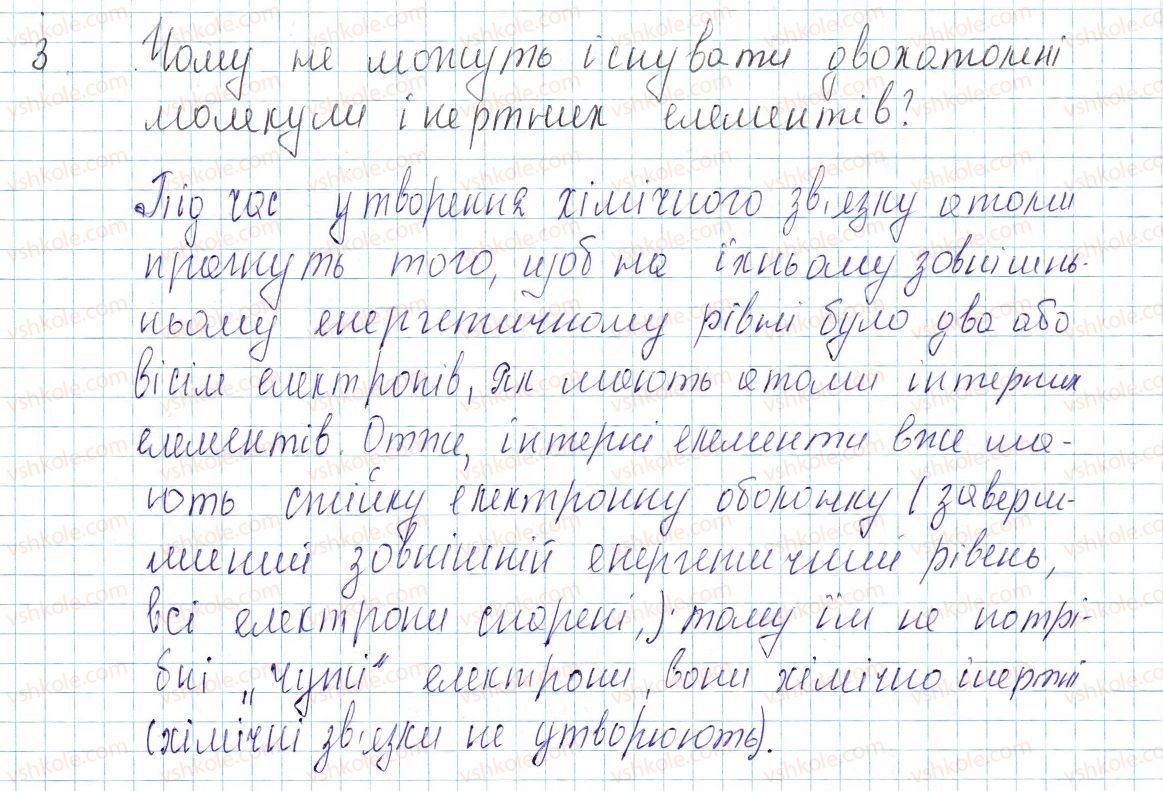 3 Чому не можуть існувати двохатомні
молекули інертних елементів?
Під час утворення хімічного зв'язку атоми
прагнуть того, щоб на їхньому зовнішнь-
ньому енергетичному рівні було два або
вісім електронів, як мають атоми інтерних
елементів. Отже, інтерні елементи вже ма-
ють стійку електронну оболонку (заверш-
шений зовнішній енергетичний рівень,
всі електрони спарені,) тому їм не потрі-
бні "чужі" електрони, вони хімічно інертні
(хімічні зв'язки не утворюють).